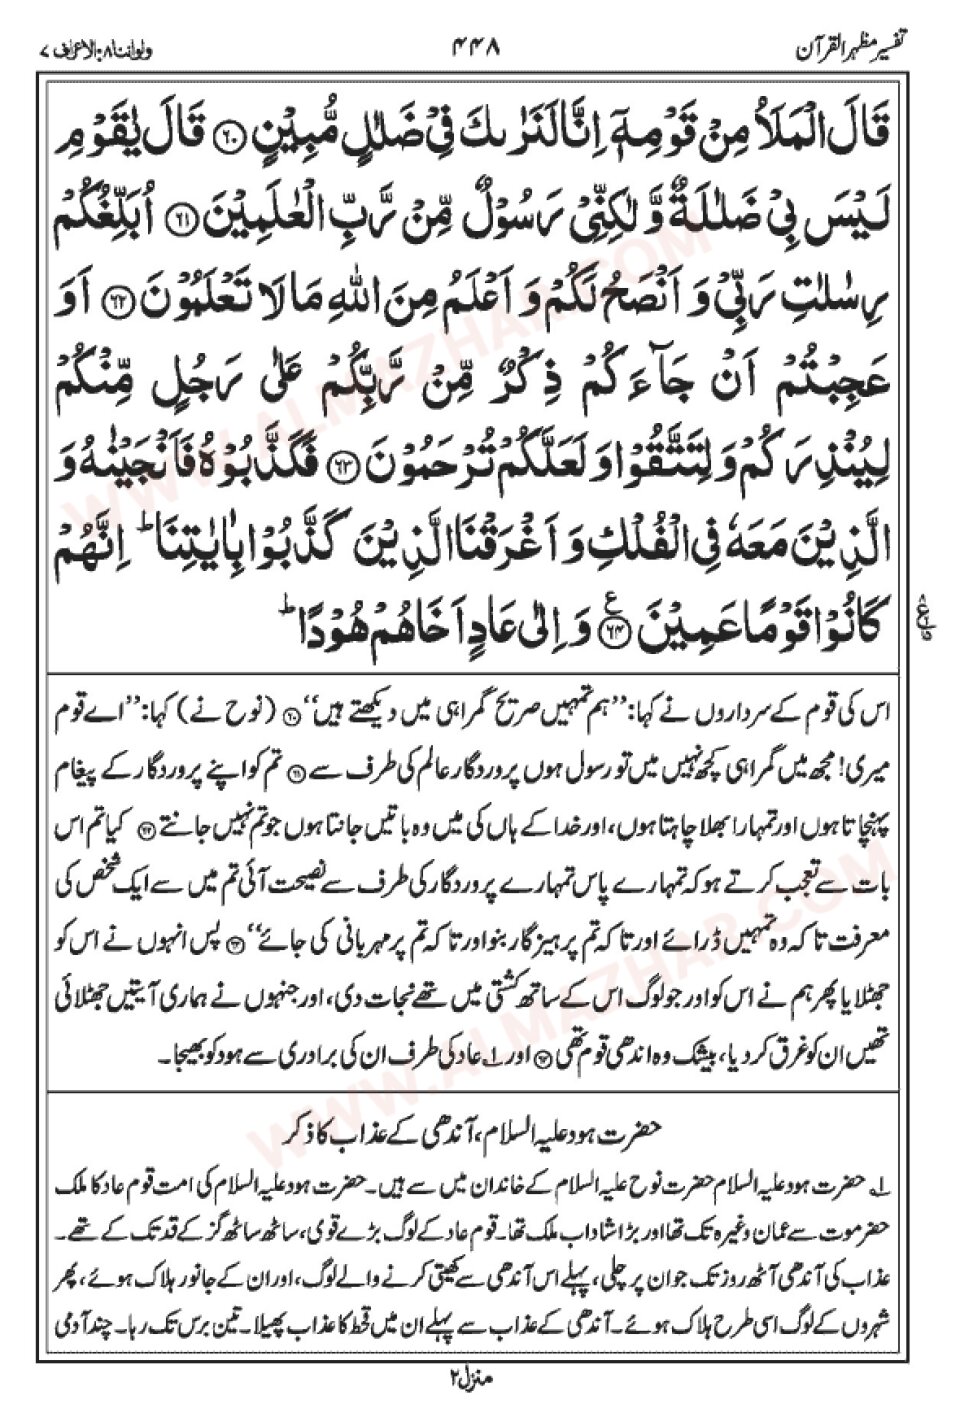 تفسیر مظہر القرآن ۴۴۸ ولواننا ۸: الاعراف ۷
قَالَ الْمَلَاُ مِنْ قَوْمِهٖٓ اِنَّا لَنَرٰىكَ فِیْ ضَلٰلٍ مُّبِیْنٍ ﴿۶۰﴾ قَالَ یٰقَوْمِ
لَیْسَ بِیْ ضَلٰلَةٌ وَّ لٰكِنِّیْ رَسُوْلٌ مِّنْ رَّبِّ الْعٰلَمِیْنَ ﴿۶۱﴾ اُبَلِّغُكُمْ
رِسٰلٰتِ رَبِّیْ وَ اَنْصَحُ لَكُمْ وَ اَعْلَمُ مِنَ اللّٰهِ مَا لَا تَعْلَمُوْنَ ﴿۶۲﴾ اَوَ
عَجِبْتُمْ اَنْ جَآءَكُمْ ذِكْرٌ مِّنْ رَّبِّكُمْ عَلٰى رَجُلٍ مِّنْكُمْ
لِیُنْذِرَكُمْ وَ لِتَتَّقُوْا وَ لَعَلَّكُمْ تُرْحَمُوْنَ ﴿۶۳﴾ فَكَذَّبُوْهُ فَاَنْجَیْنٰهُ وَ
الَّذِیْنَ مَعَهٗ فِی الْفُلْكِ وَ اَغْرَقْنَا الَّذِیْنَ كَذَّبُوْا بِاٰیٰتِنَا ؕ اِنَّهُمْ
كَانُوْا قَوْمًا عَمِیْنَ ﴿۶۴﴾ ع وَ اِلٰى عَادٍ اَخَاهُمْ هُوْدًا ؕ
اس کی قوم کے سرداروں نے کہا: ’’ہم تمہیں صریح گمراہی میں دیکھتے ہیں‘‘ ﴿۶۰﴾ (نوح نے) کہا: ’’اے قوم
میری! مجھ میں گمراہی کچھ نہیں میں تو رسول ہوں پروردگار عالم کی طرف سے ﴿۶۱﴾ تم کو اپنے پروردگار کے پیغام
پہنچاتا ہوں اور تمہارا بھلا چاہتا ہوں، اور خدا کے ہاں کی میں وہ باتیں جانتا ہوں جو تم نہیں جانتے ﴿۶۲﴾ کیا تم اس
بات سے تعجب کرتے ہو کہ تمہارے پاس تمہارے پروردگار کی طرف سے نصیحت آئی تم میں سے ایک شخص کی
معرفت تاکہ وہ تمہیں ڈرائے اور تاکہ تم پرہیزگار بنو اور تاکہ تم پر مہربانی کی جائے‘‘ ﴿۶۳﴾ پس انہوں نے اس کو
جھٹلایا پھر ہم نے اس کو اور جو لوگ اس کے ساتھ کشتی میں تھے نجات دی، اور جنہوں نے ہماری آیتیں جھٹلائی
تھیں ان کو غرق کر دیا، بیشک وہ اندھی قوم تھی ﴿۶۴﴾ اور ۱؎ عاد کی طرف ان کی برادری سے ہود کو بھیجا۔
حضرت ہود علیہ السلام، آندھی کے عذاب کا ذکر
۱؎ حضرت ہود علیہ السلام حضرت نوح علیہ السلام کے خاندان میں سے ہیں۔ حضرت ہود علیہ السلام کی امت قوم عاد کا ملک
حضرموت سے عمان وغیرہ تک تھا اور بڑا شاداب ملک تھا۔ قوم عاد کے لوگ بڑے قوی، ساٹھ ساٹھ گز کے قد تک کے تھے۔
عذاب کی آندھی آٹھ روز تک جو ان پر چلی، پہلے اس آندھی سے کھیتی کرنے والے لوگ، اور ان کے جانور ہلاک ہوئے، پھر
شہروں کے لوگ اسی طرح ہلاک ہوئے۔ آندھی کے عذاب سے پہلے ان میں قحط کا عذاب پھیلا۔ تین برس تک رہا۔ چند آدمی
منزل ۲
WWW.ALMAZHAR.COM
WWW.ALMAZHAR.COM